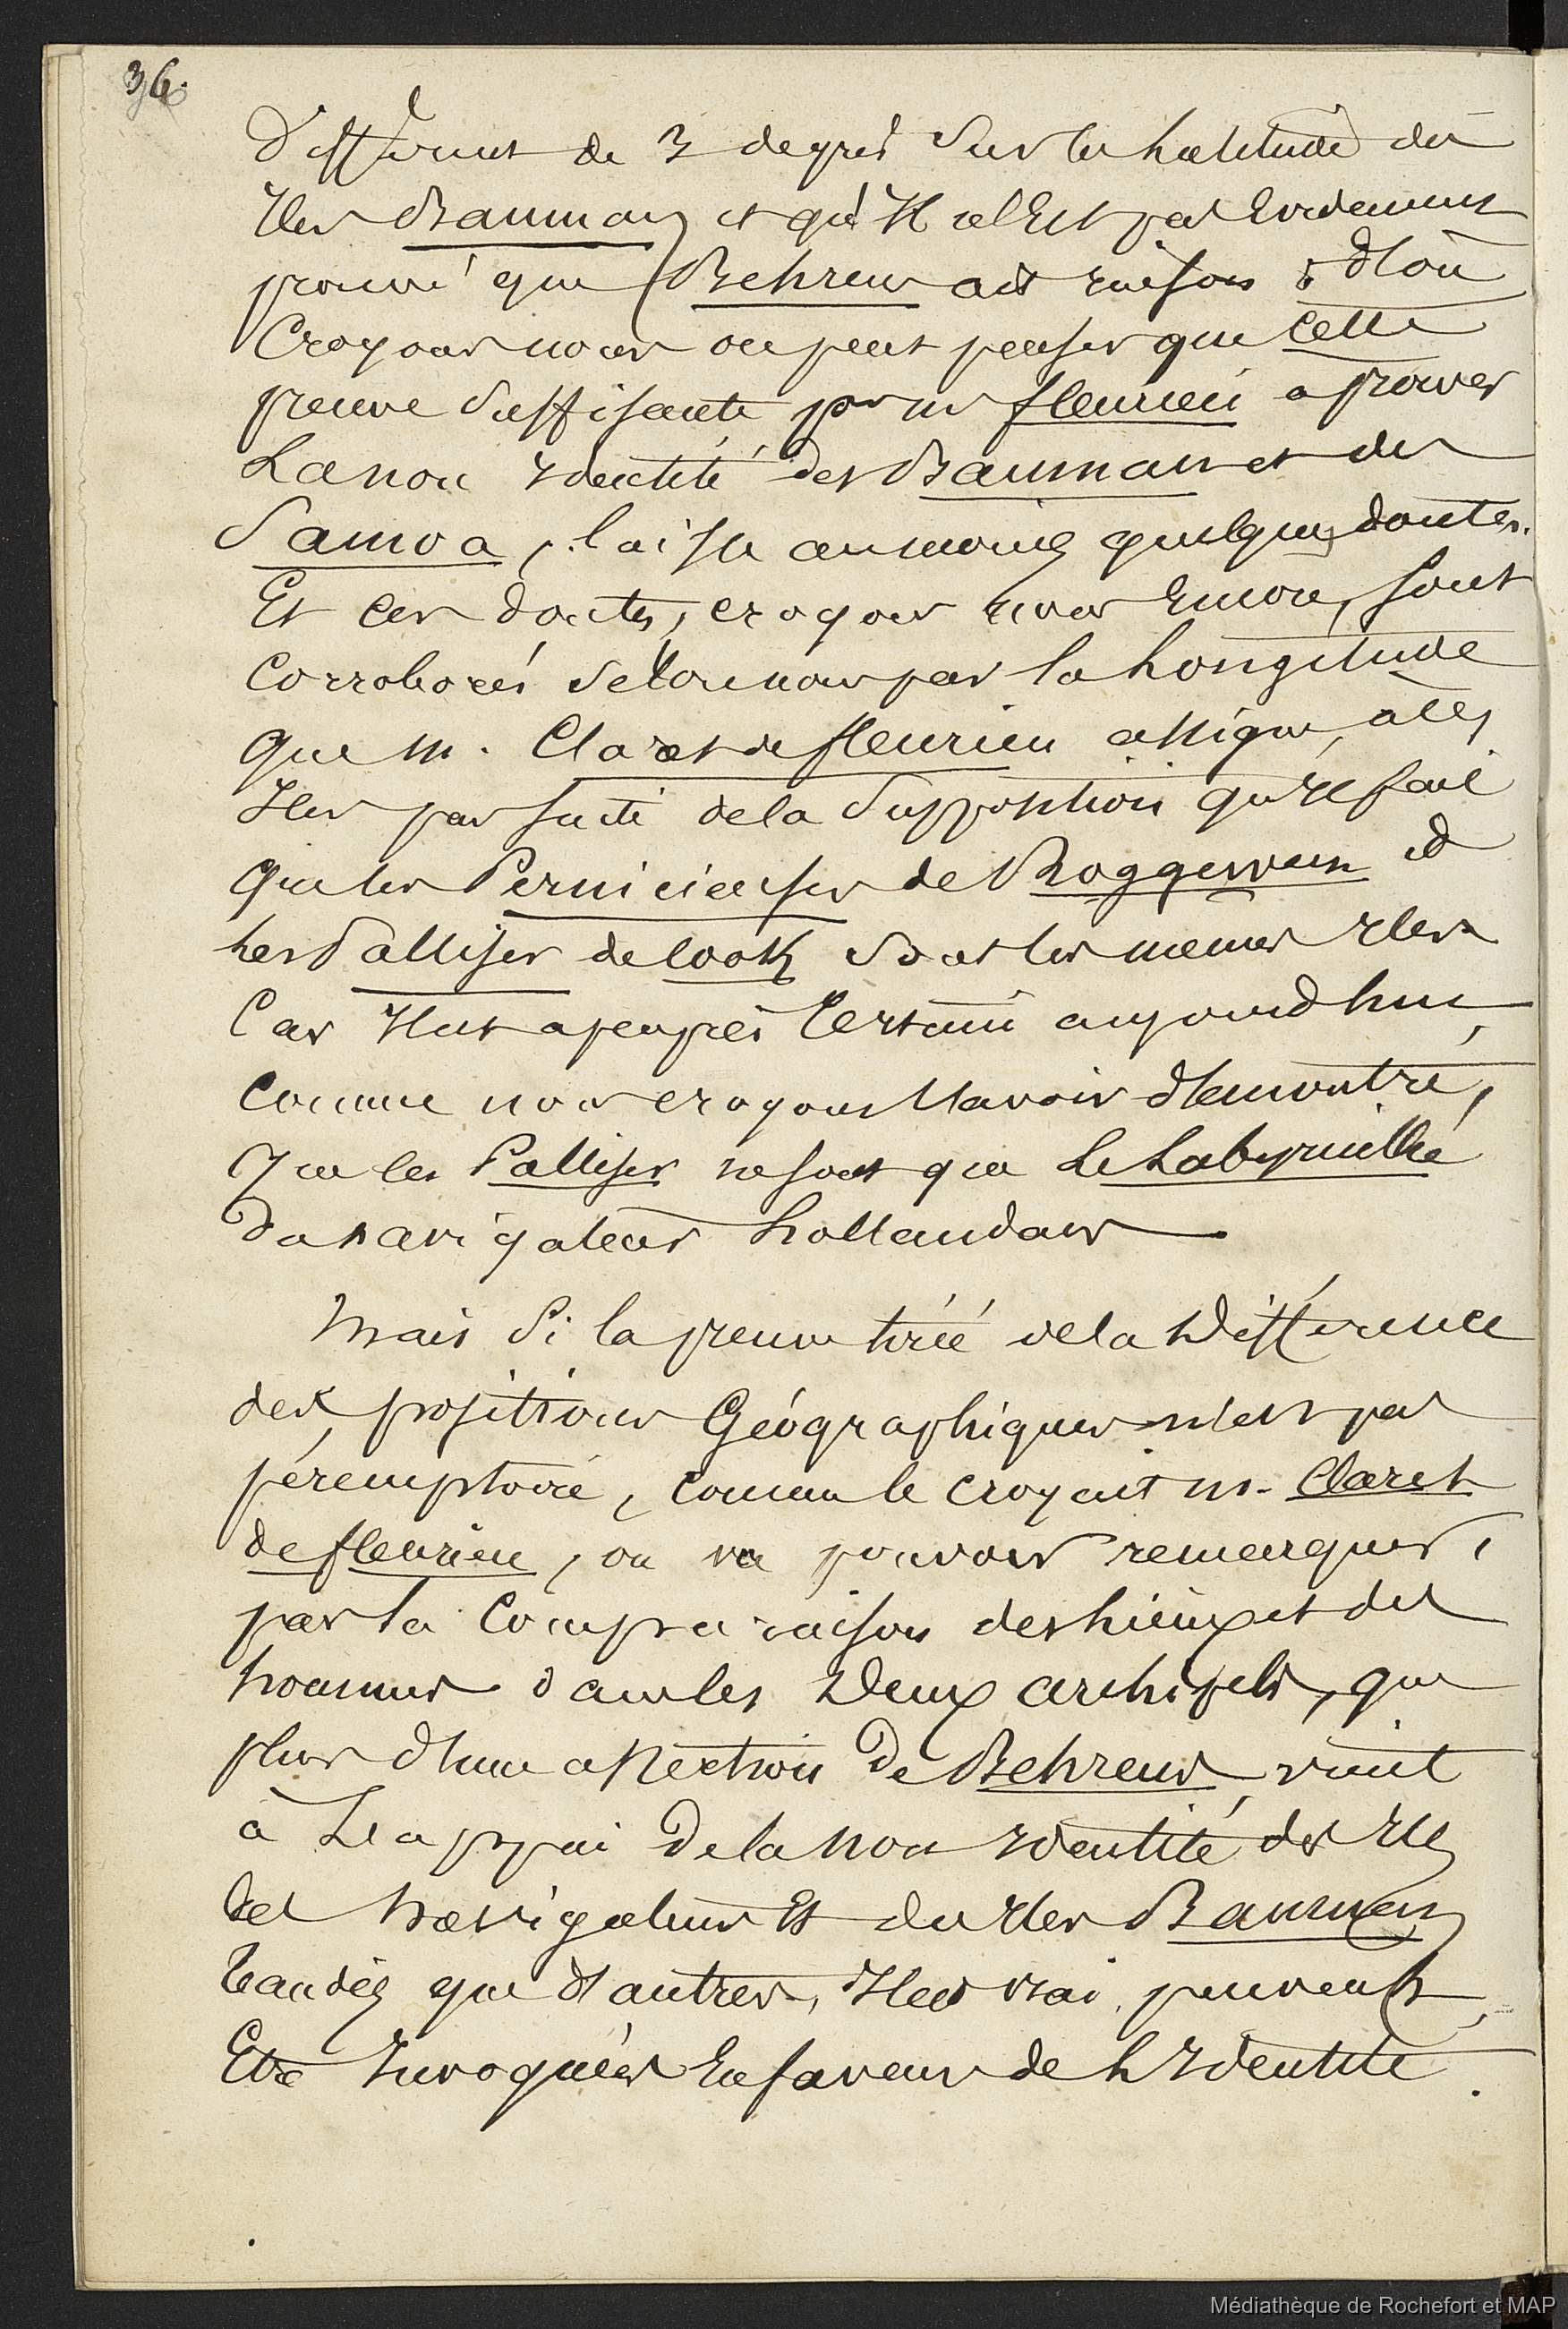 36.
Différent de 3 degrés Sur la Latitude des
Iles Bauman et qu'Il n'est pas Evidemment
prouvé que Behrens ait raison ; d'où
Croyons nous on peut penser que cette
preuve Suffisante pour fleurieu a prouver
La non Identité des Bauman et des
Samoa, laisse au moins quelques doutes.
Et ces doutes, croyons nous Encore, sont
Corroborés selon nous par la Longitude
Que M. Claret de fleurieu assigne, à ces
Iles par suite de la Supposition qu'Il fait
Que les Pernicieuses de Roggewein et
Les Palliser de Cook Sont les memes Iles
Car Il est a peu près Certain aujourd'hui,
Comme nous croyons l'avoir démontré,
Que les Palliser ne sont que Le Labyrinthe
du navigateur hollandais
Mais Si la preuve tirée de la Différence
des positions Géographiques n'est pas
péremptoire, comme le croyait M. Claret
de fleurieu, on va pouvoir remarquer,
par la Comparaison des Lieux et des
hommes dans les Deux archipels, que
plus d'une assertion De Behrens, vient
à L'appui De la non Identité des Iles
des Navigateurs Et des Iles Bauman
tandis que d'autres, Il est vrai, peuvent,
Etre Invoquées En faveur de L'Identité.
Médiathèque de Rochefort et MAP